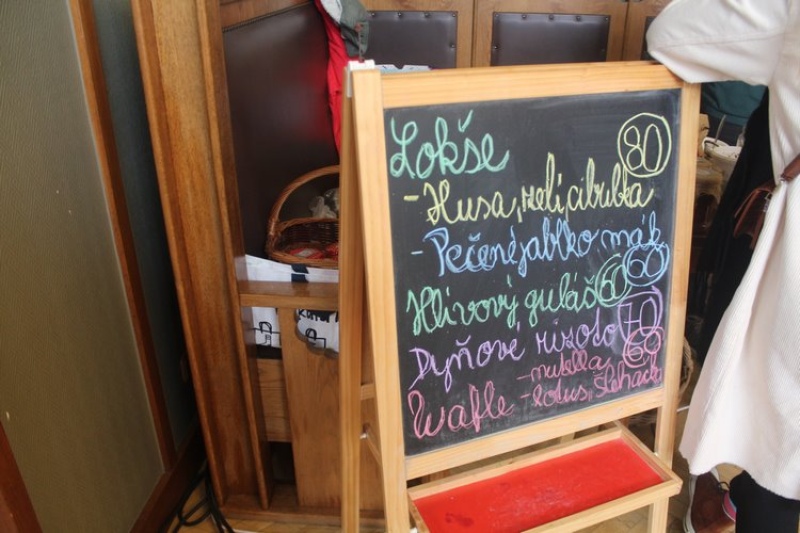 Lokše 80
- Husa, zelí, cibulka
- Pečené jablko mák 60
Hlívový guláš 60
Dýňové rizoto 70
- nutella 60
Wafle - lotus, šlehačk